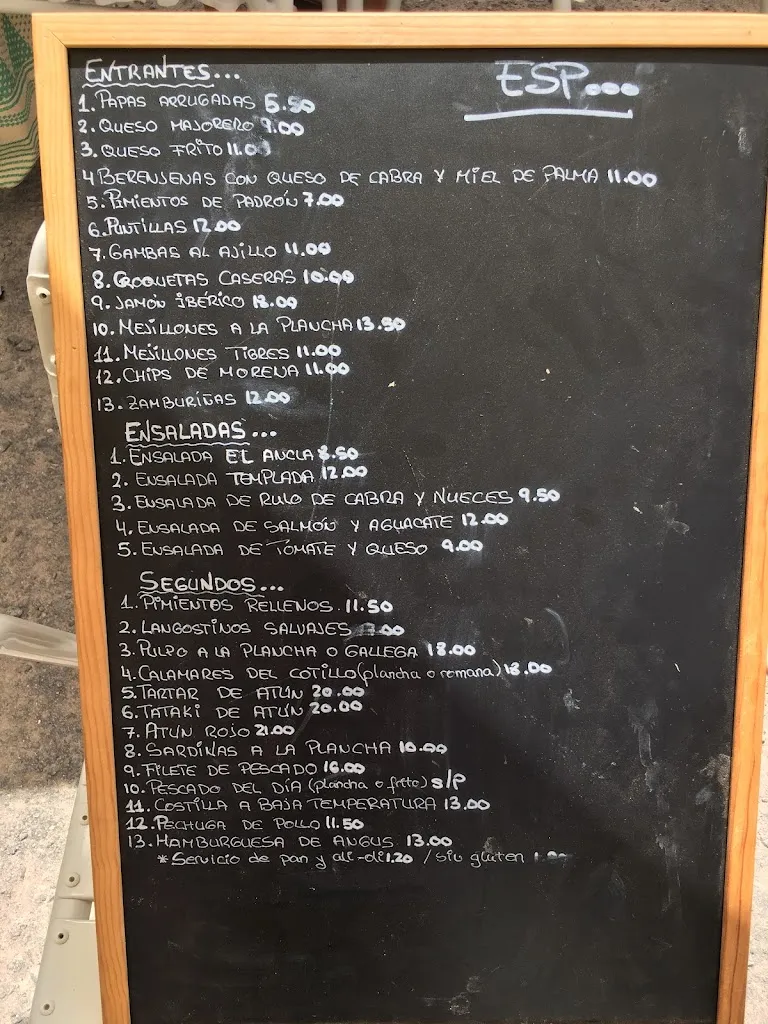 ENTRANTES...
ESP...
1. PAPAS ARRUGADAS 5.50
2. QUESO MAJORERO 9.00
3. QUESO FRITO 11.00
4 BERENJENAS CON QUESO DE CABRA Y MIEL DE PALMA 11.00
5. PIMIENTOS DE PADRÓN 7.00
6. PUNTILLAS 12.00
7. GAMBAS AL AJILLO 11.00
8. CROQUETAS CASERAS 10.00
9. JAMÓN IBÉRICO 18.00
10. MEJILLONES A LA PLANCHA 13.50
11. MEJILLONES TIGRES 11.00
12. CHIPS DE MORENA 11.00
13. ZAMBURIÑAS 12.00
ENSALADAS...
1. ENSALADA EL ANCLA 8.50
2. ENSALADA TEMPLADA 12.00
3. ENSALADA DE RULO DE CABRA Y NUECES 9.50
4. ENSALADA DE SALMÓN Y AGUACATE 12.00
5. ENSALADA DE TOMATE Y QUESO 9.00
SEGUNDOS...
1. PIMIENTOS RELLENOS. 11.50
2. LANGOSTINOS SALVAJES
3. PULPO A LA PLANCHA O GALLEGA 18.00
4. CALAMARES DEL COTILLO (plancha o romana) 18.00
5. TARTAR DE ATÚN 20.00
6. TATAKI DE ATÚN 20.00
7. ATÚN ROJO 21.00
8. SARDINAS A LA PLANCHA 10.00
9. FILETE DE PESCADO 16.00
10. PESCADO DEL DÍA (plancha o frito) S/P
11. COSTILLA A BAJA TEMPERATURA 13.00
12. PECHUGA DE POLLO 11.50
13. HAMBURGUESA DE ANGUS 13.00
*Servicio de pan y ali-oli 1.20 / sin gluten